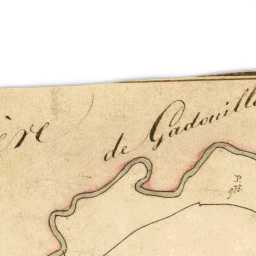 ère de Gadouill